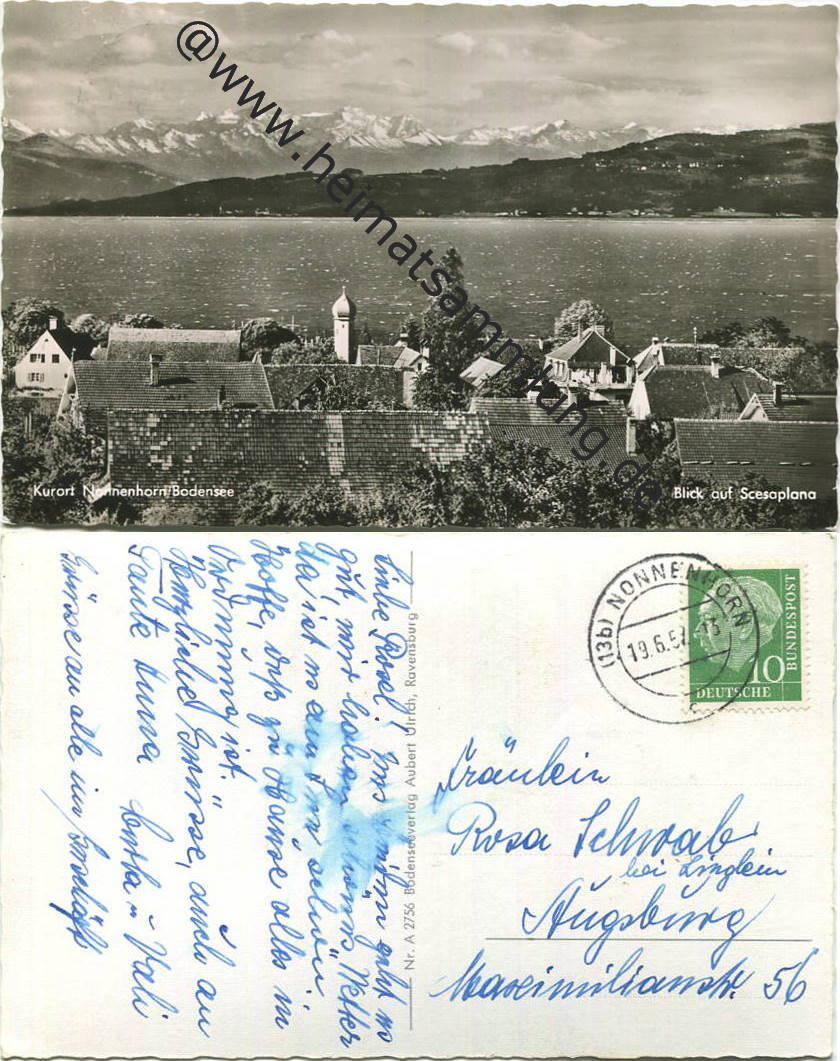 @www.heimatsammlung.de
Kurort Nonnenhorn/Bodensee
Blick auf Scesaplana
Liebe Rosel! Uns geht es
gut, wir haben Wetter
da ist es am See schön
Hoffe, daß zu Hause alles in
Ordnung ist.
Herzliche Grüsse, auch an
Tante Anna
Vali
Grüsse an alle im Geschäft
Nr. A 2756 Bodenseeverlag Aubert Ulrich, Ravensburg
(13b) NONNENHORN
19.6.57
10
DEUTSCHE
BUNDESPOST
Fräulein
Rosa Schwab
bei Linglein
Augsburg
Maximilianstr. 56